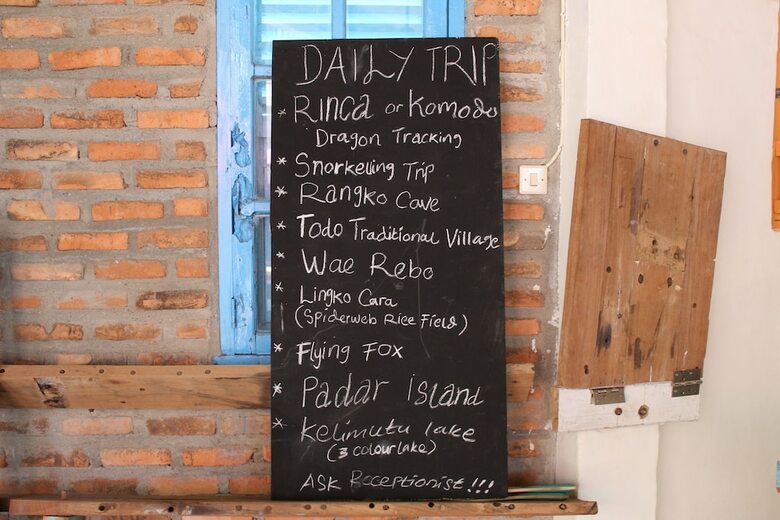 DAILY TRIP
* Rinca or Komodo
Dragon Tracking
* Snorkelling Trip
* Rangko Cave
* Todo Traditional Village
* Wae Rebo
* Lingko Cara
(Spiderweb Rice Field)
* Flying Fox
* Padar Island
* Kelimutu lake
(3 colour lake)
ASK Receptionist!!!